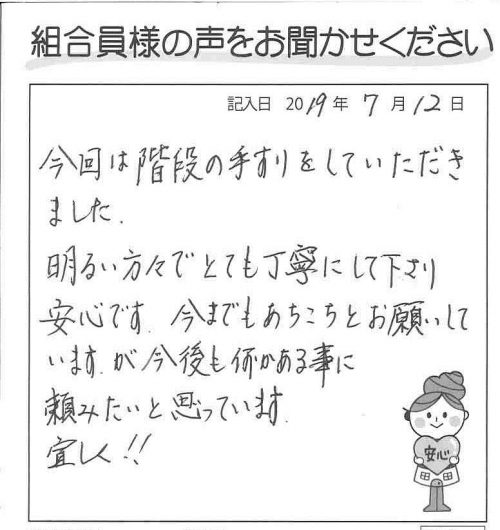 組合員様の声をお聞かせください
記入日 2019年 7月12日
今回は階段の手すりをしていただき
ました.
明るい方々でとても丁寧にして下さり
安心です. 今までもあちこちとお願いして
います.が今後も何かある事に
頼みたいと思っています.
宜しく!!
安心